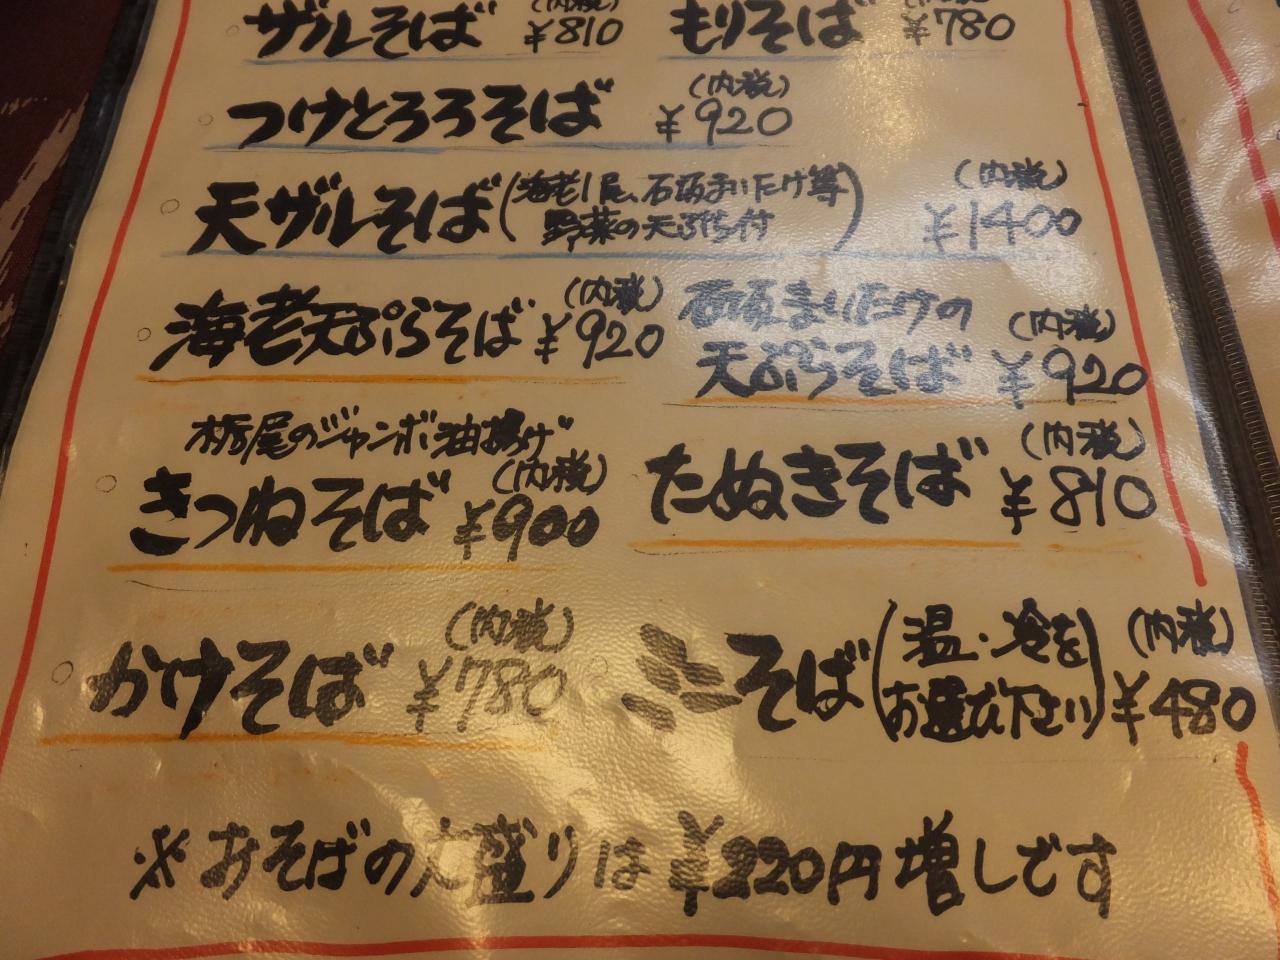 ザルそば (内税) ¥810 もりそば (内税) ¥780
つけとろろそば (内税) ¥920
天ザルそば (海老1尾、石坂まいたけ等 野菜の天ぷら付) (内税) ¥1400
海老天ぷらそば (内税) ¥920
石坂まいたけの
天ぷらそば (内税) ¥920
栃尾のジャンボ油揚げ
きつねそば (内税) ¥900
たぬきそば (内税) ¥810
かけそば (内税) ¥780
ミニそば (温・冷を お選び下さい) (内税) ¥480
※おそばの大盛りは¥220円増しです